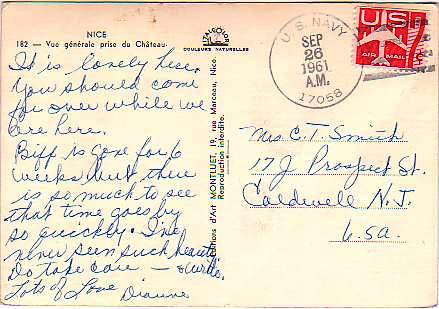 NICE
182 — Vue générale prise du Château
COULEURS NATURELLES
U.S. NAVY
SEP
26
1961
A.M.
17058
US
AIR MAIL
It is lovely here.
You should come
for over while we
are here.
Biff is gone for 6
weeks but there
is so much to see
that time goes by
so quickly. I've
never seen such beauty.
Do take care — & write.
Lots of Love Dianne
Editions d'Art MONTLUET, 19, rue Marceau, Nice.
Reproduction interdite.
Mrs. C. T. Smith
17 J Prospect St.
Caldwell N. J.
U.S.A.